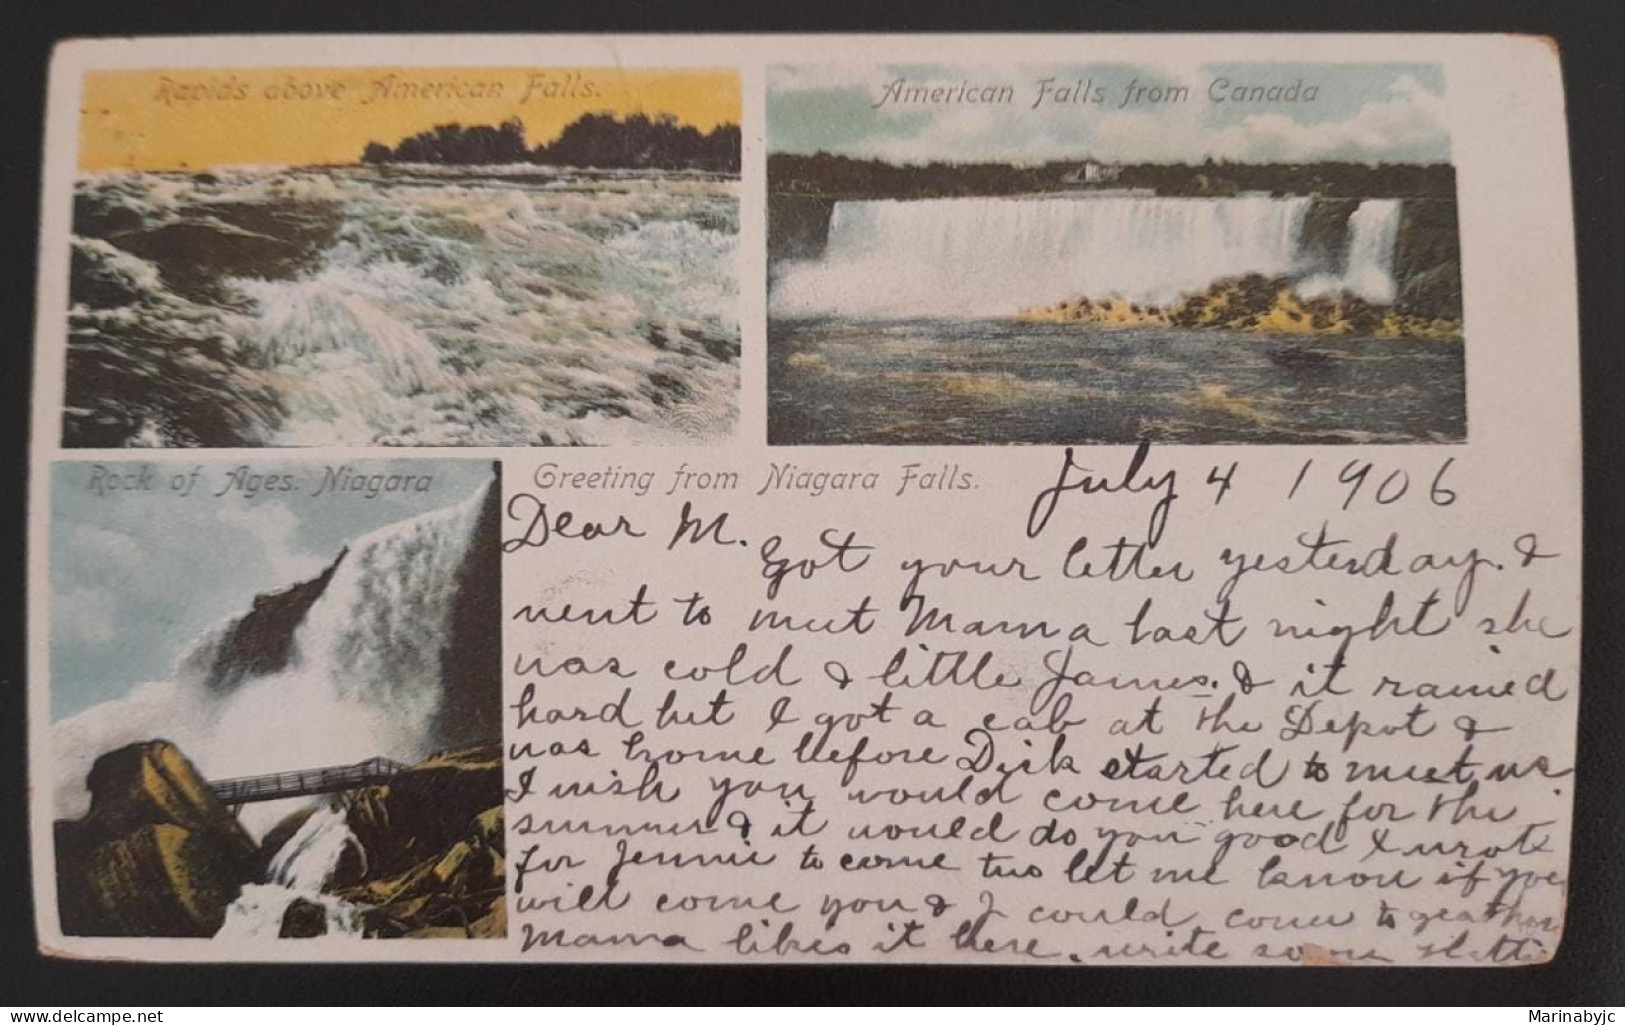 Rapids above American Falls.
American Falls from Canada
Rock of Ages. Niagara
Greeting from Niagara Falls.
July 4 1906
Dear M.
Got your letter yesterday. &
went to meet Mama last night she
was cold & little James. & it rained
hard but I got a cab at the Depot &
was home before Dick started to meet us
I wish you would come here for the
summer & it would do you good I wrote
for Jennie to come two let me know if you
will come you & I could come to geather
Mama likes it here. write soon
Marinabyjc